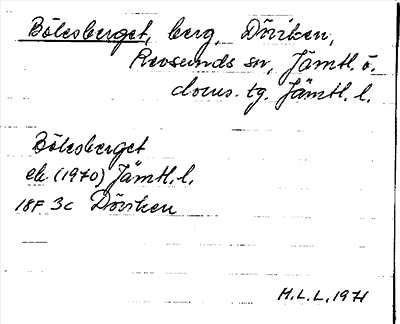 Bölesberget, berg, Döviken,
Revsunds sn, Jämtl. ö.
doms. tg. Jämtl. l.
Bölesberget
ek (1970) Jämtl. l.
18F 3c Döviken
H.L.L. 1971